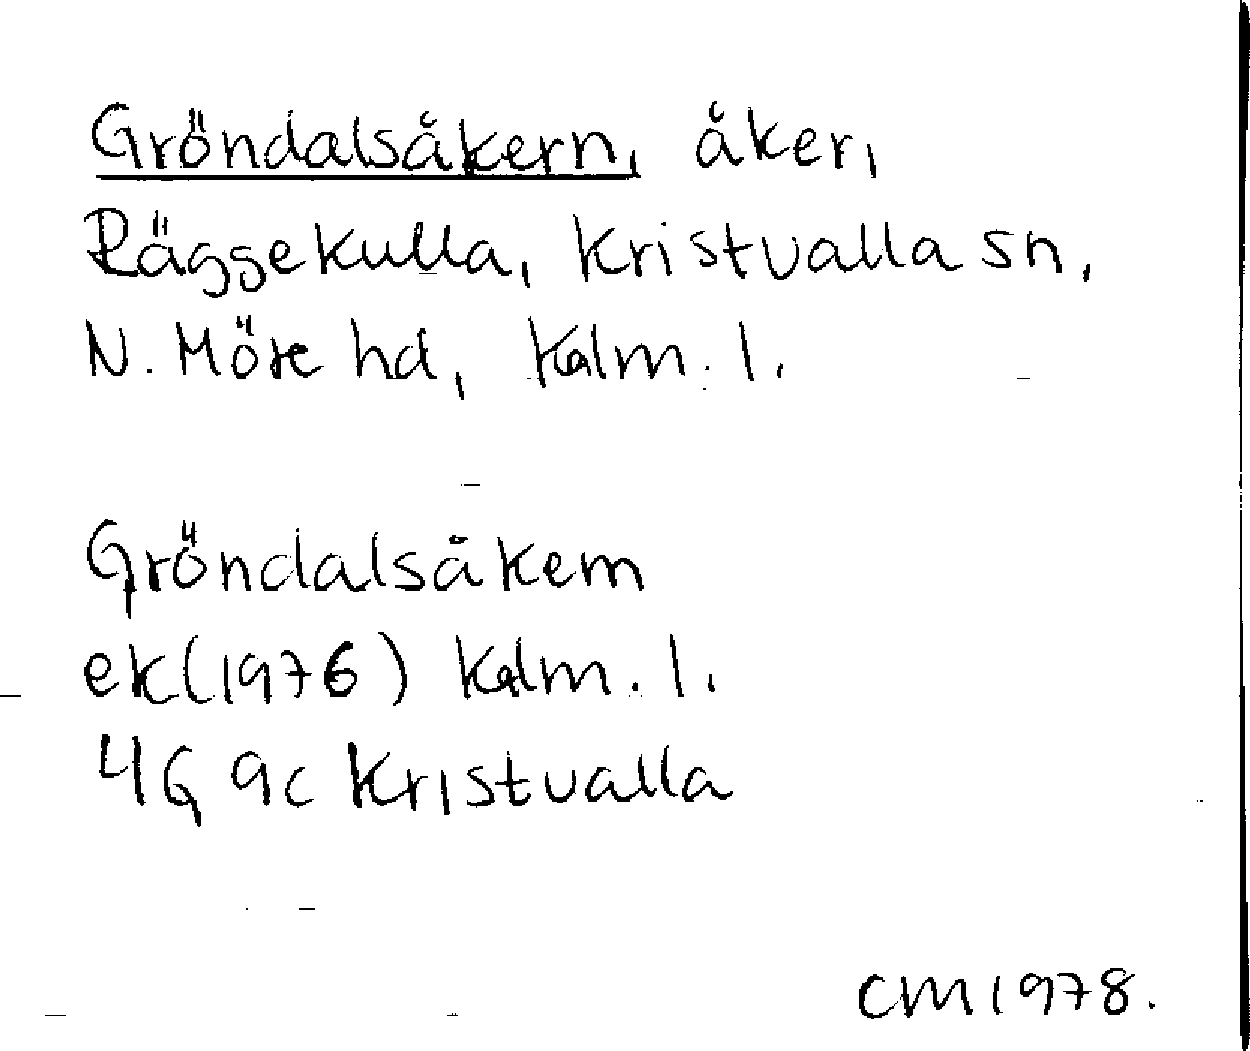 Gröndalsåkern, åker,
Räggekulla, Kristvalla sn,
N. Möre hd, Kalm. l.
Gröndalsåkern
ek(1976) Kalm. l.
4G 9c Kristvalla
CM 1978.